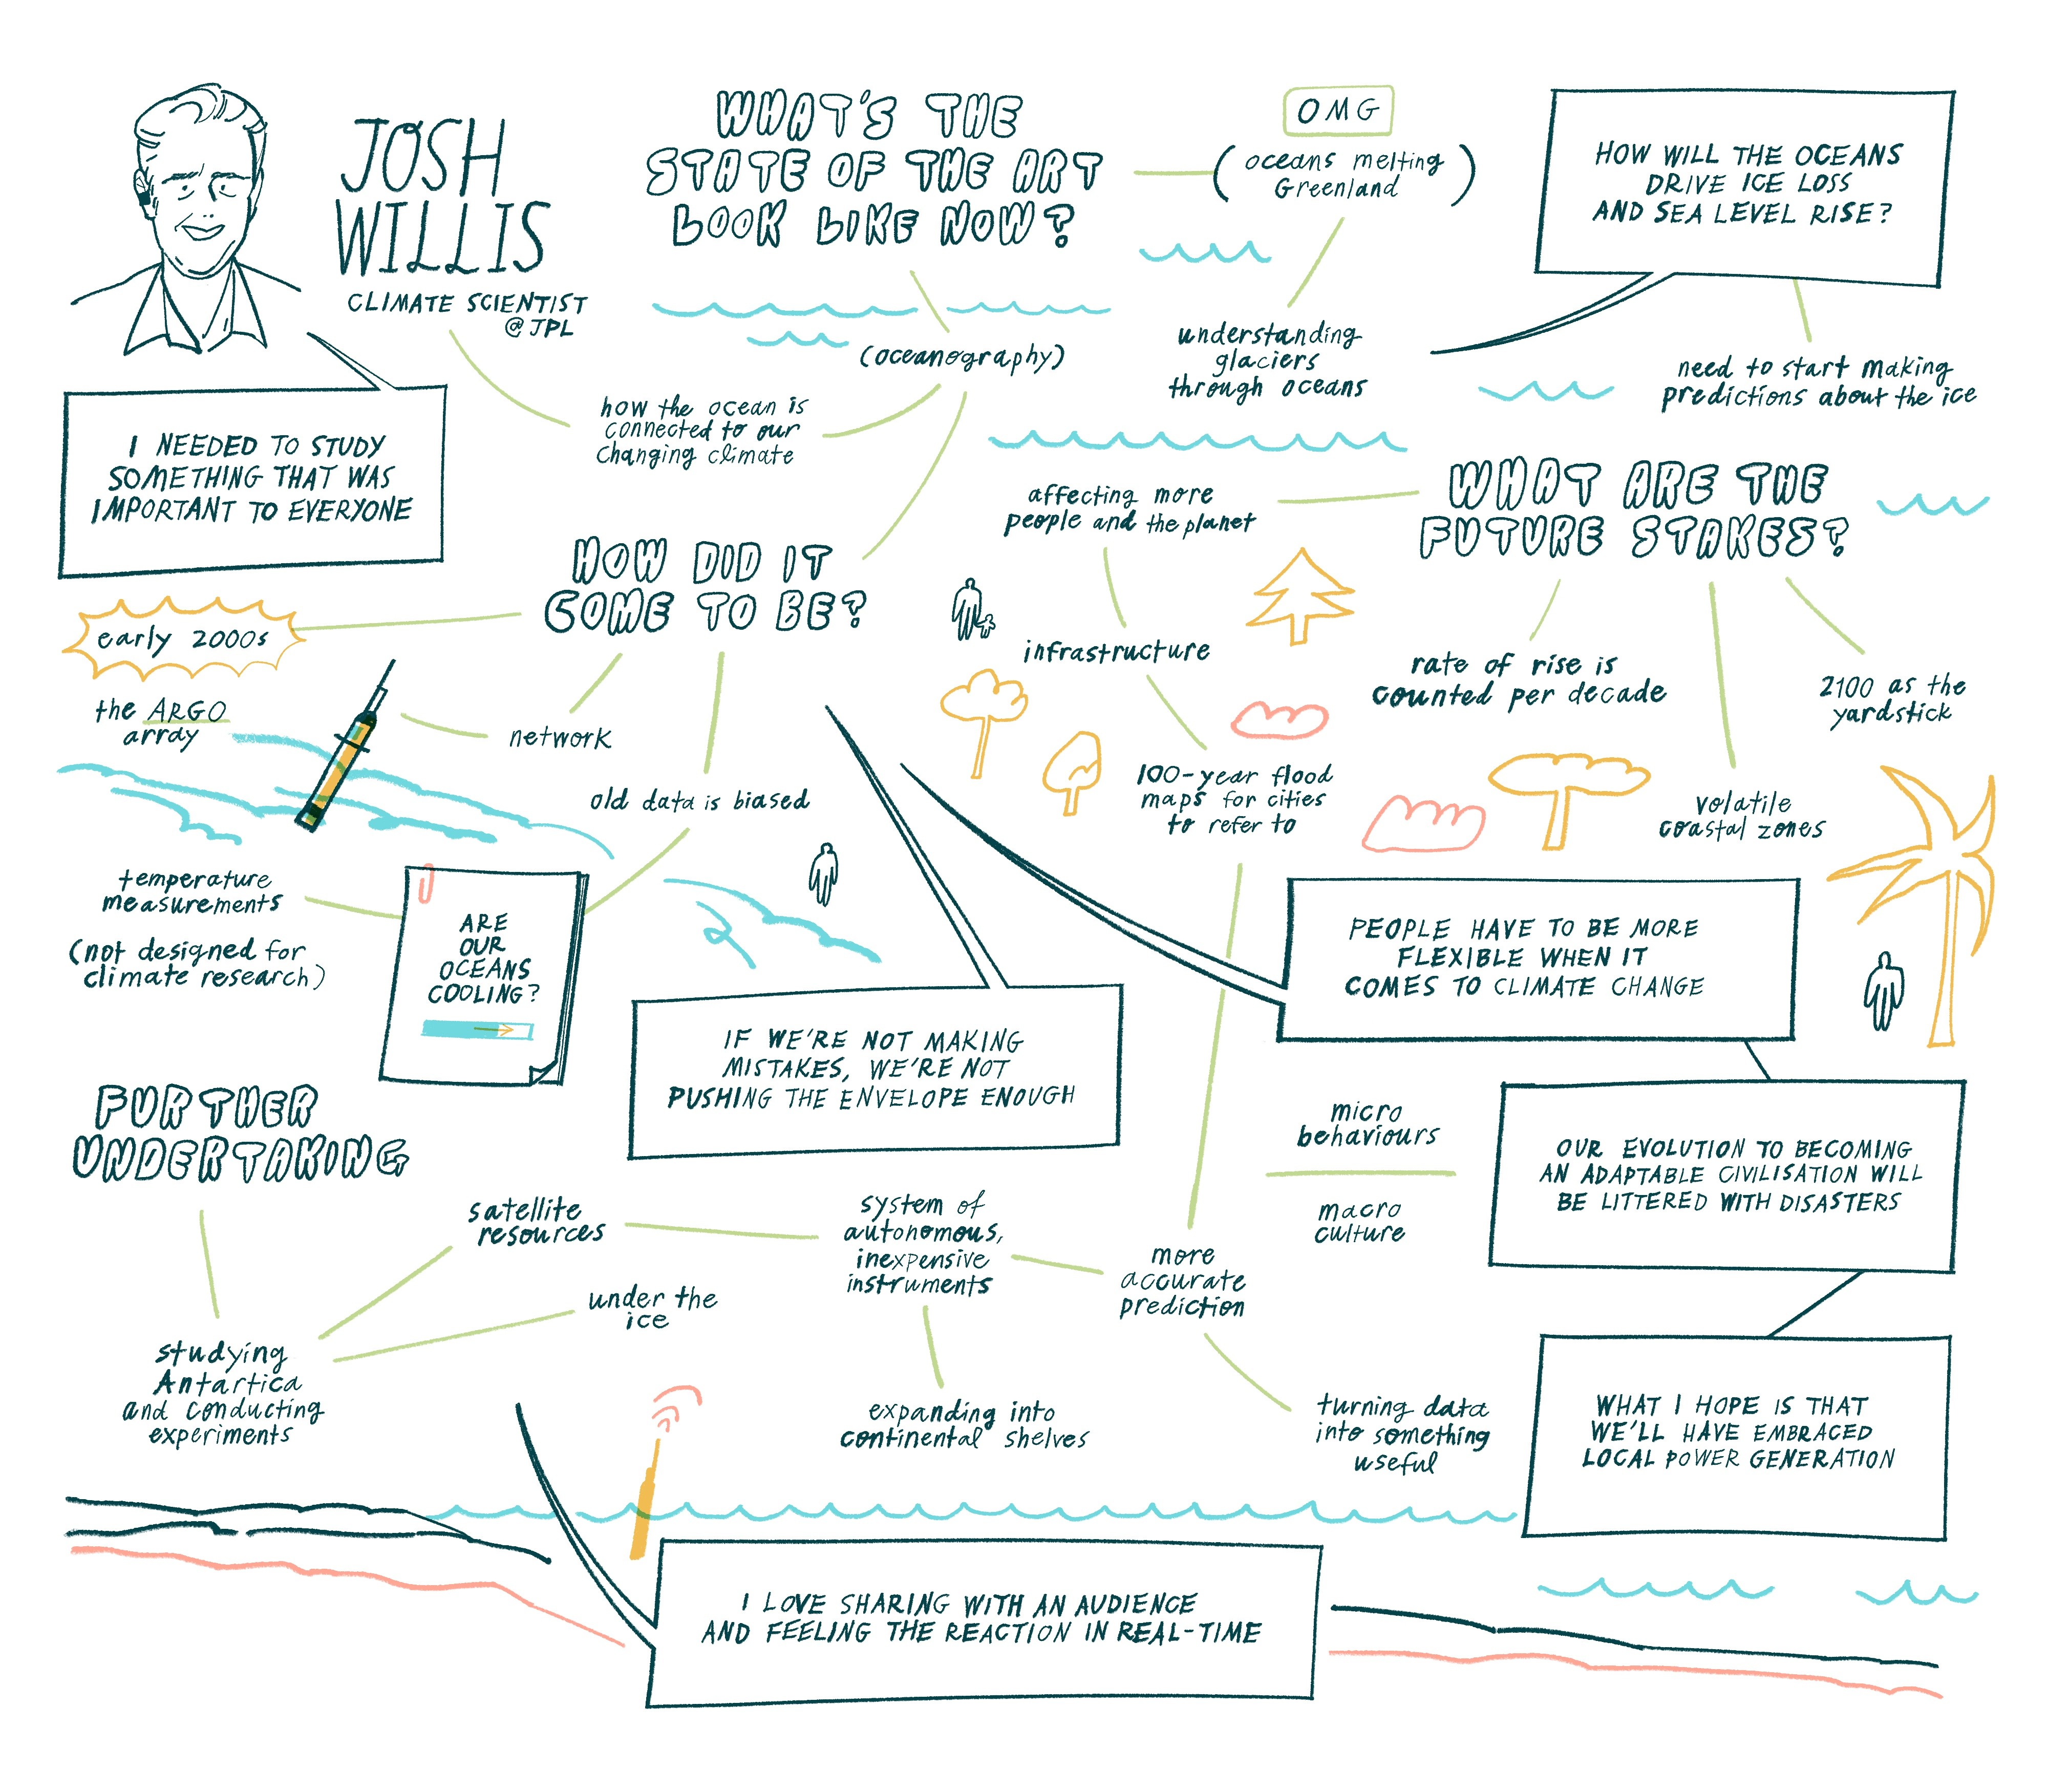 JOSH
WILLIS
CLIMATE SCIENTIST
@ JPL
I NEEDED TO STUDY
SOMETHING THAT WAS
IMPORTANT TO EVERYONE
WHAT'S THE
STATE OF THE ART
LOOK LIKE NOW?
OMG
(oceans melting
Greenland)
HOW WILL THE OCEANS
DRIVE ICE LOSS
AND SEA LEVEL RISE?
(oceanography)
how the ocean is
connected to our
changing climate
understanding
glaciers
through oceans
need to start making
predictions about the ice
HOW DID IT
COME TO BE?
early 2000s
the ARGO
array
network
old data is biased
temperature
measurements
(not designed for
climate research)
ARE
OUR
OCEANS
COOLING?
IF WE'RE NOT MAKING
MISTAKES, WE'RE NOT
PUSHING THE ENVELOPE ENOUGH
WHAT ARE THE
FUTURE STAKES?
affecting more
people and the planet
infrastructure
100-year flood
maps for cities
to refer to
rate of rise is
counted per decade
2100 as the
yardstick
volatile
coastal zones
PEOPLE HAVE TO BE MORE
FLEXIBLE WHEN IT
COMES TO CLIMATE CHANGE
micro
behaviours
macro
culture
OUR EVOLUTION TO BECOMING
AN ADAPTABLE CIVILISATION WILL
BE LITTERED WITH DISASTERS
WHAT I HOPE IS THAT
WE'LL HAVE EMBRACED
LOCAL POWER GENERATION
FURTHER
UNDERTAKING
satellite
resources
under the
ice
studying
Antartica
and conducting
experiments
system of
autonomous,
inexpensive
instruments
more
accurate
prediction
expanding into
continental shelves
turning data
into something
useful
I LOVE SHARING WITH AN AUDIENCE
AND FEELING THE REACTION IN REAL-TIME